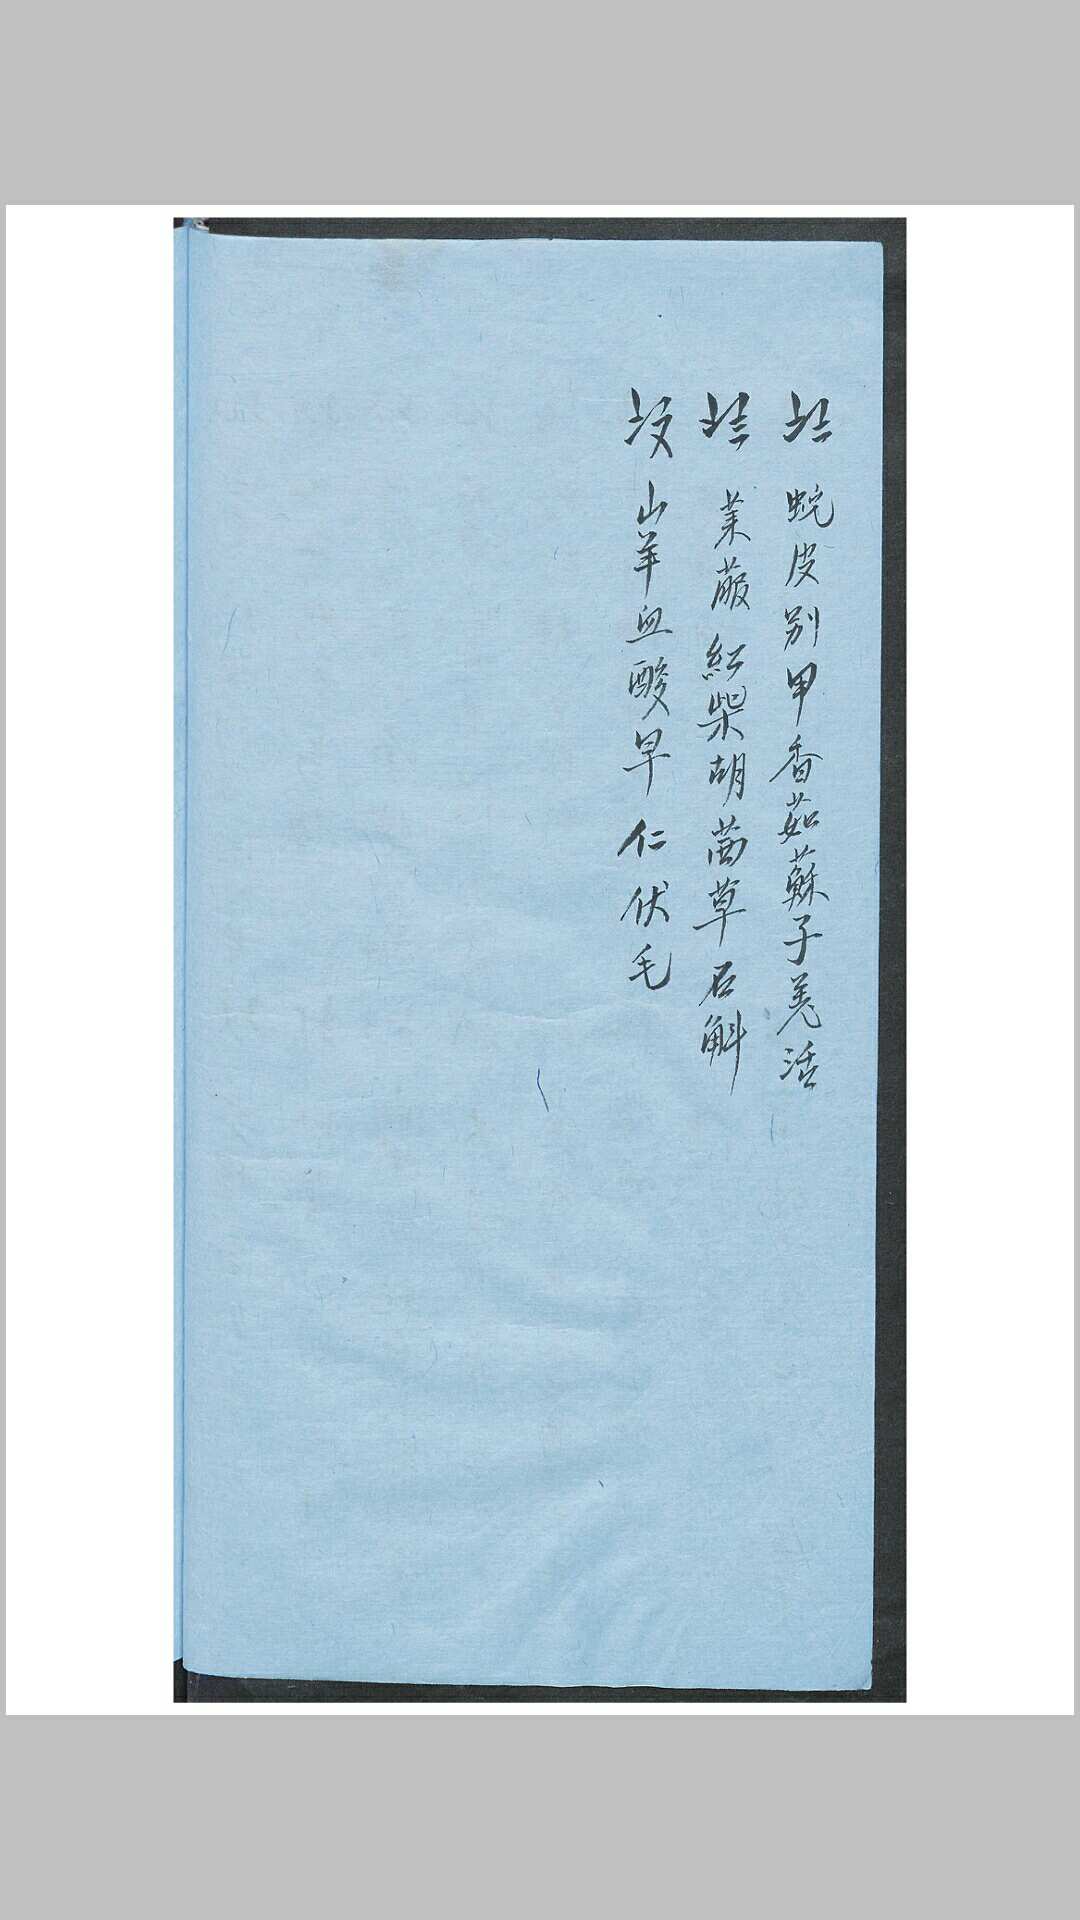 蛇皮别甲香茹蘇子羌活
茱菔紅柴胡茜草石斛
山羊血酸早仁伏毛